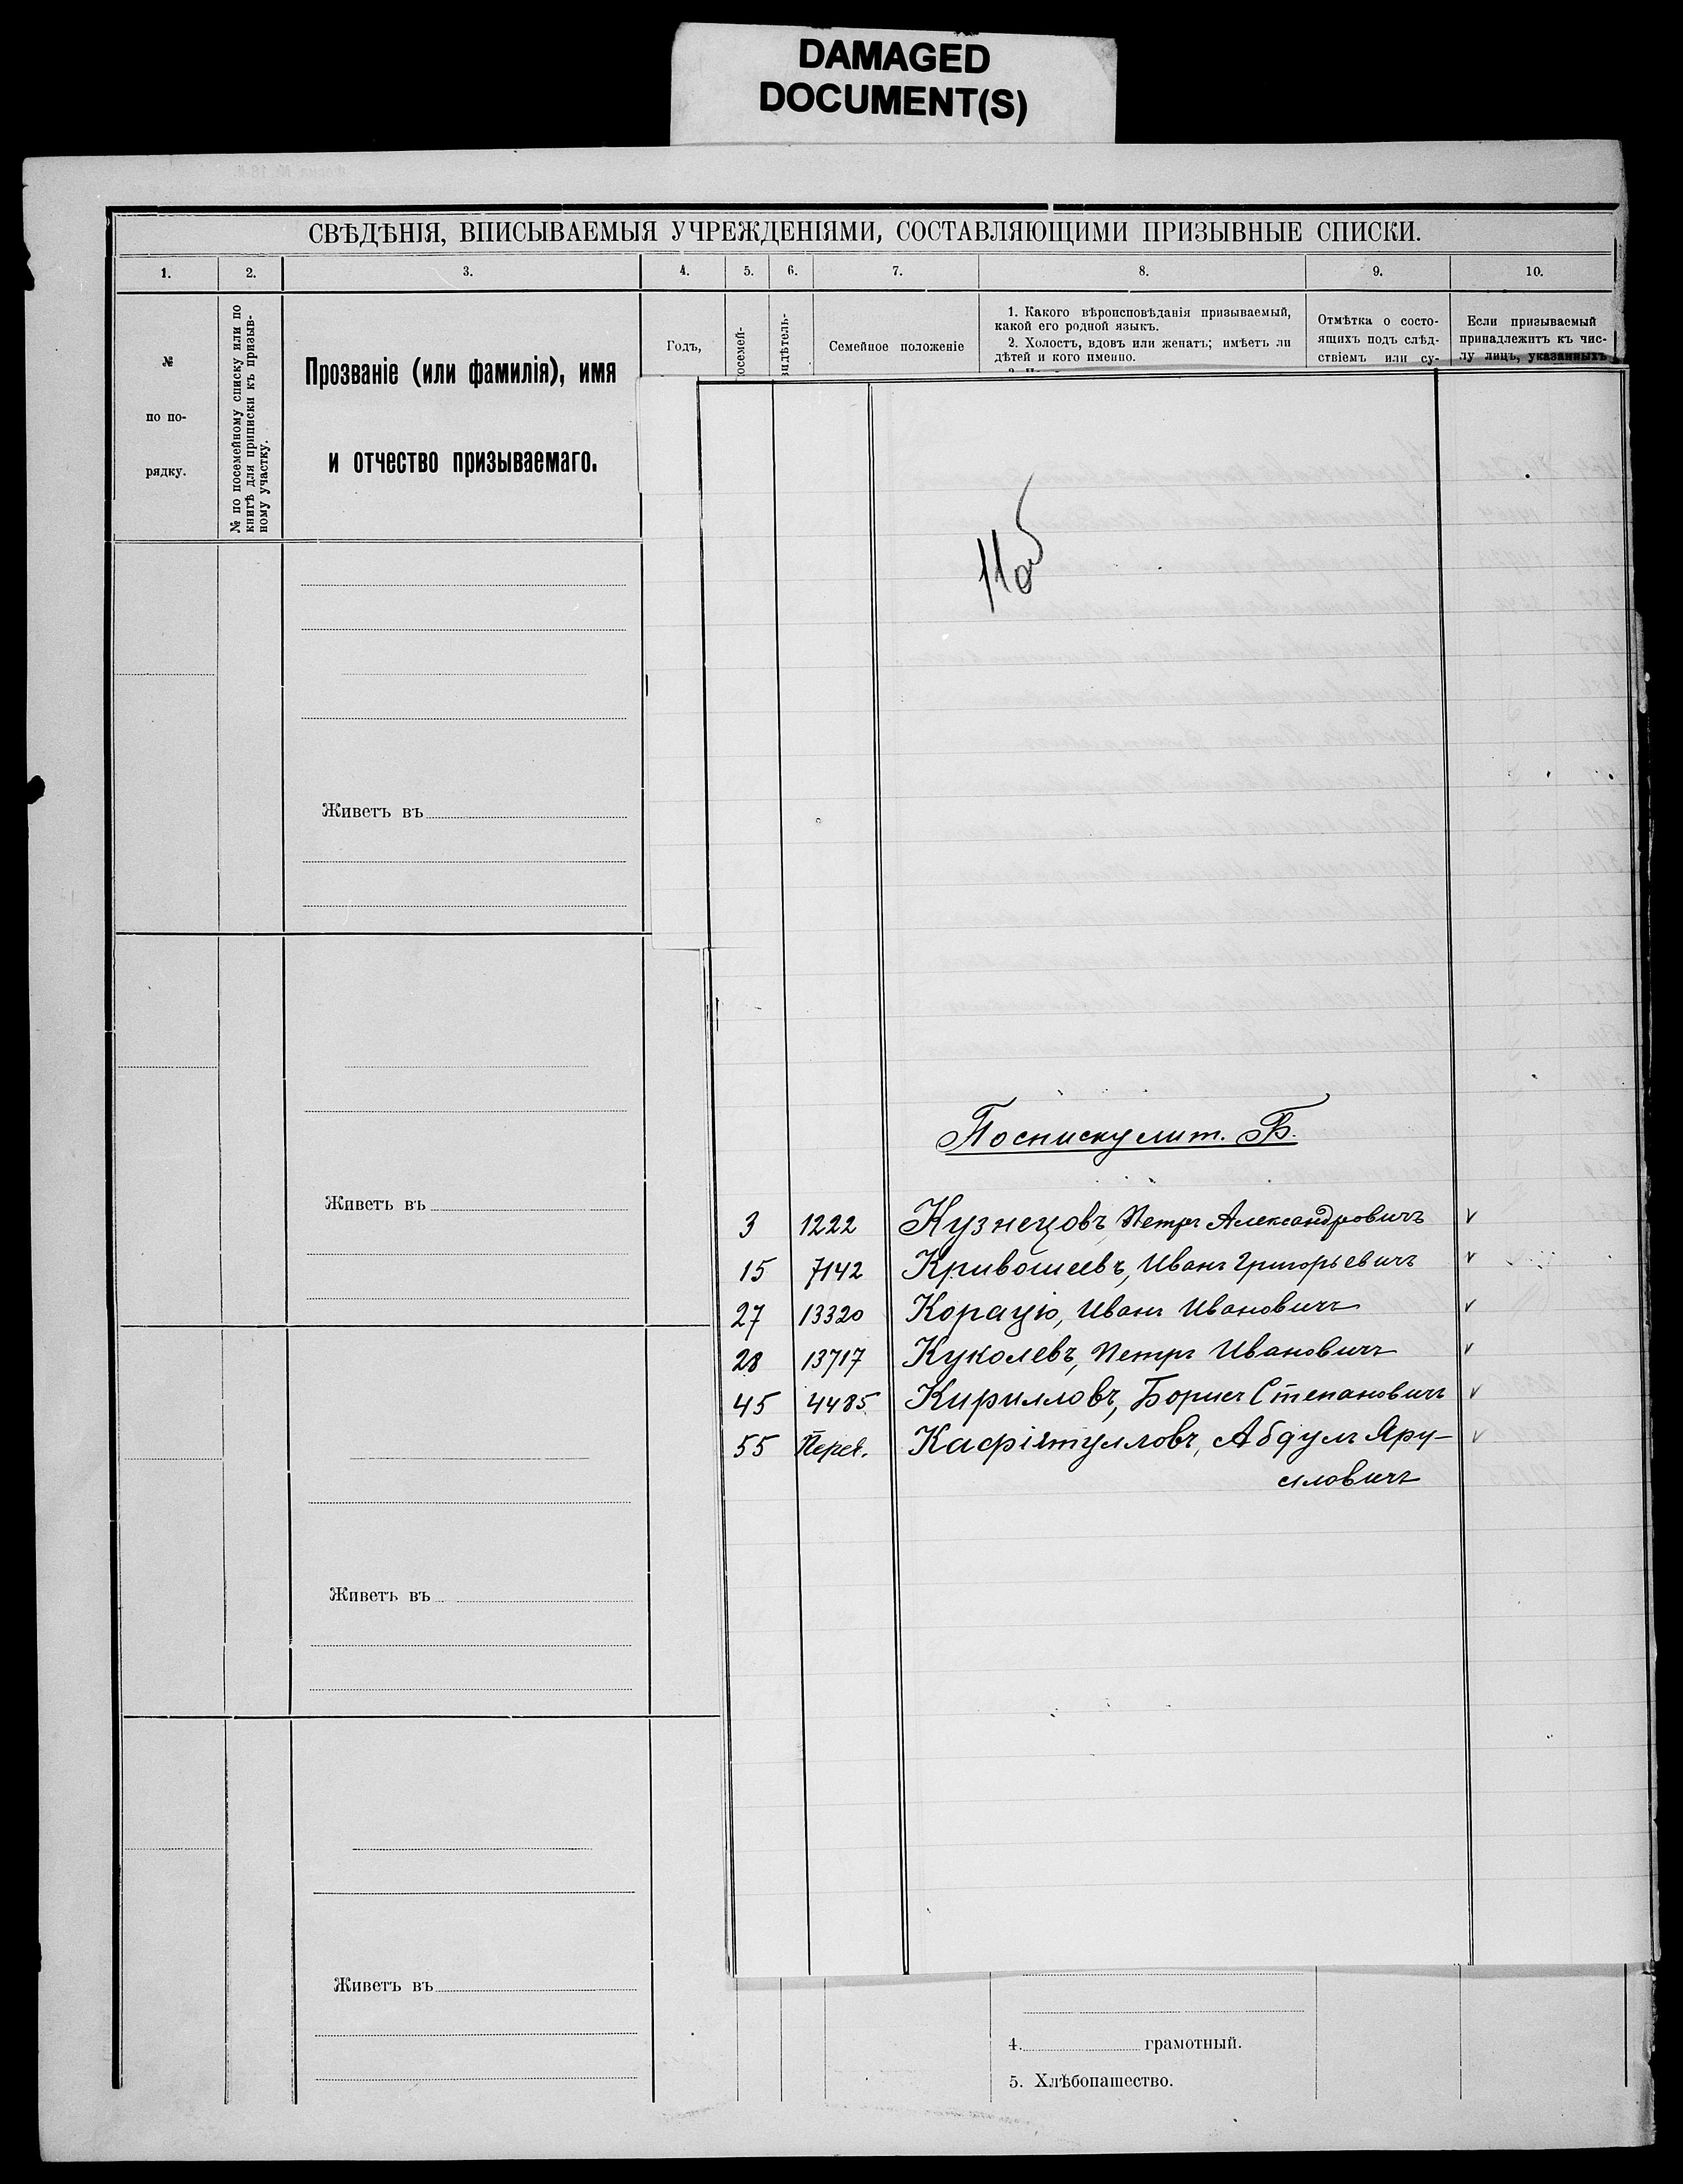 DAMAGED
DOCUMENT(S)
СВѢДѢНІЯ, ВПИСЫВАЕМЫЯ УЧРЕЖДЕНІЯМИ, СОСТАВЛЯЮЩИМИ ПРИЗЫВНЫЕ СПИСКИ.
1. 2. 3. 4. 5. 6. 7. 8. 9. 10.
№
по по-
рядку.
№ по посемейному списку или по
книгѣ для приписки къ призыв-
ному участку.
Прозваніе (или фамилія), имя
и отчество призываемаго.
Годъ,
осемей-
идѣтель-
Семейное положеніе
1. Какого вѣроисповѣданія призываемый,
какой его родной языкъ.
2. Холостъ, вдовъ или женатъ; имѣетъ ли
дѣтей и кого именно.
Отмѣтка о состо-
ящихъ подъ слѣд-
ствіемъ или су-
Если призываемый
принадлежитъ къ чис-
лу лицъ, указанныхъ
Живетъ въ
Живетъ въ
Живетъ въ
Живетъ въ
По списку лит. Б.
3 1222 Кузнецовъ, Петръ Александровичъ v
15 7142 Кривошеевъ, Иванъ Григорьевичъ v
27 13320 Корацю, Иванъ Ивановичъ v
28 13717 Куколевъ, Петръ Ивановичъ v
45 4485 Кирилловъ, Борисъ Степановичъ v
55 Касфіятулловъ, Абдулъ Яру- v
лловичъ
4. грамотный.
5. Хлѣбопашество.